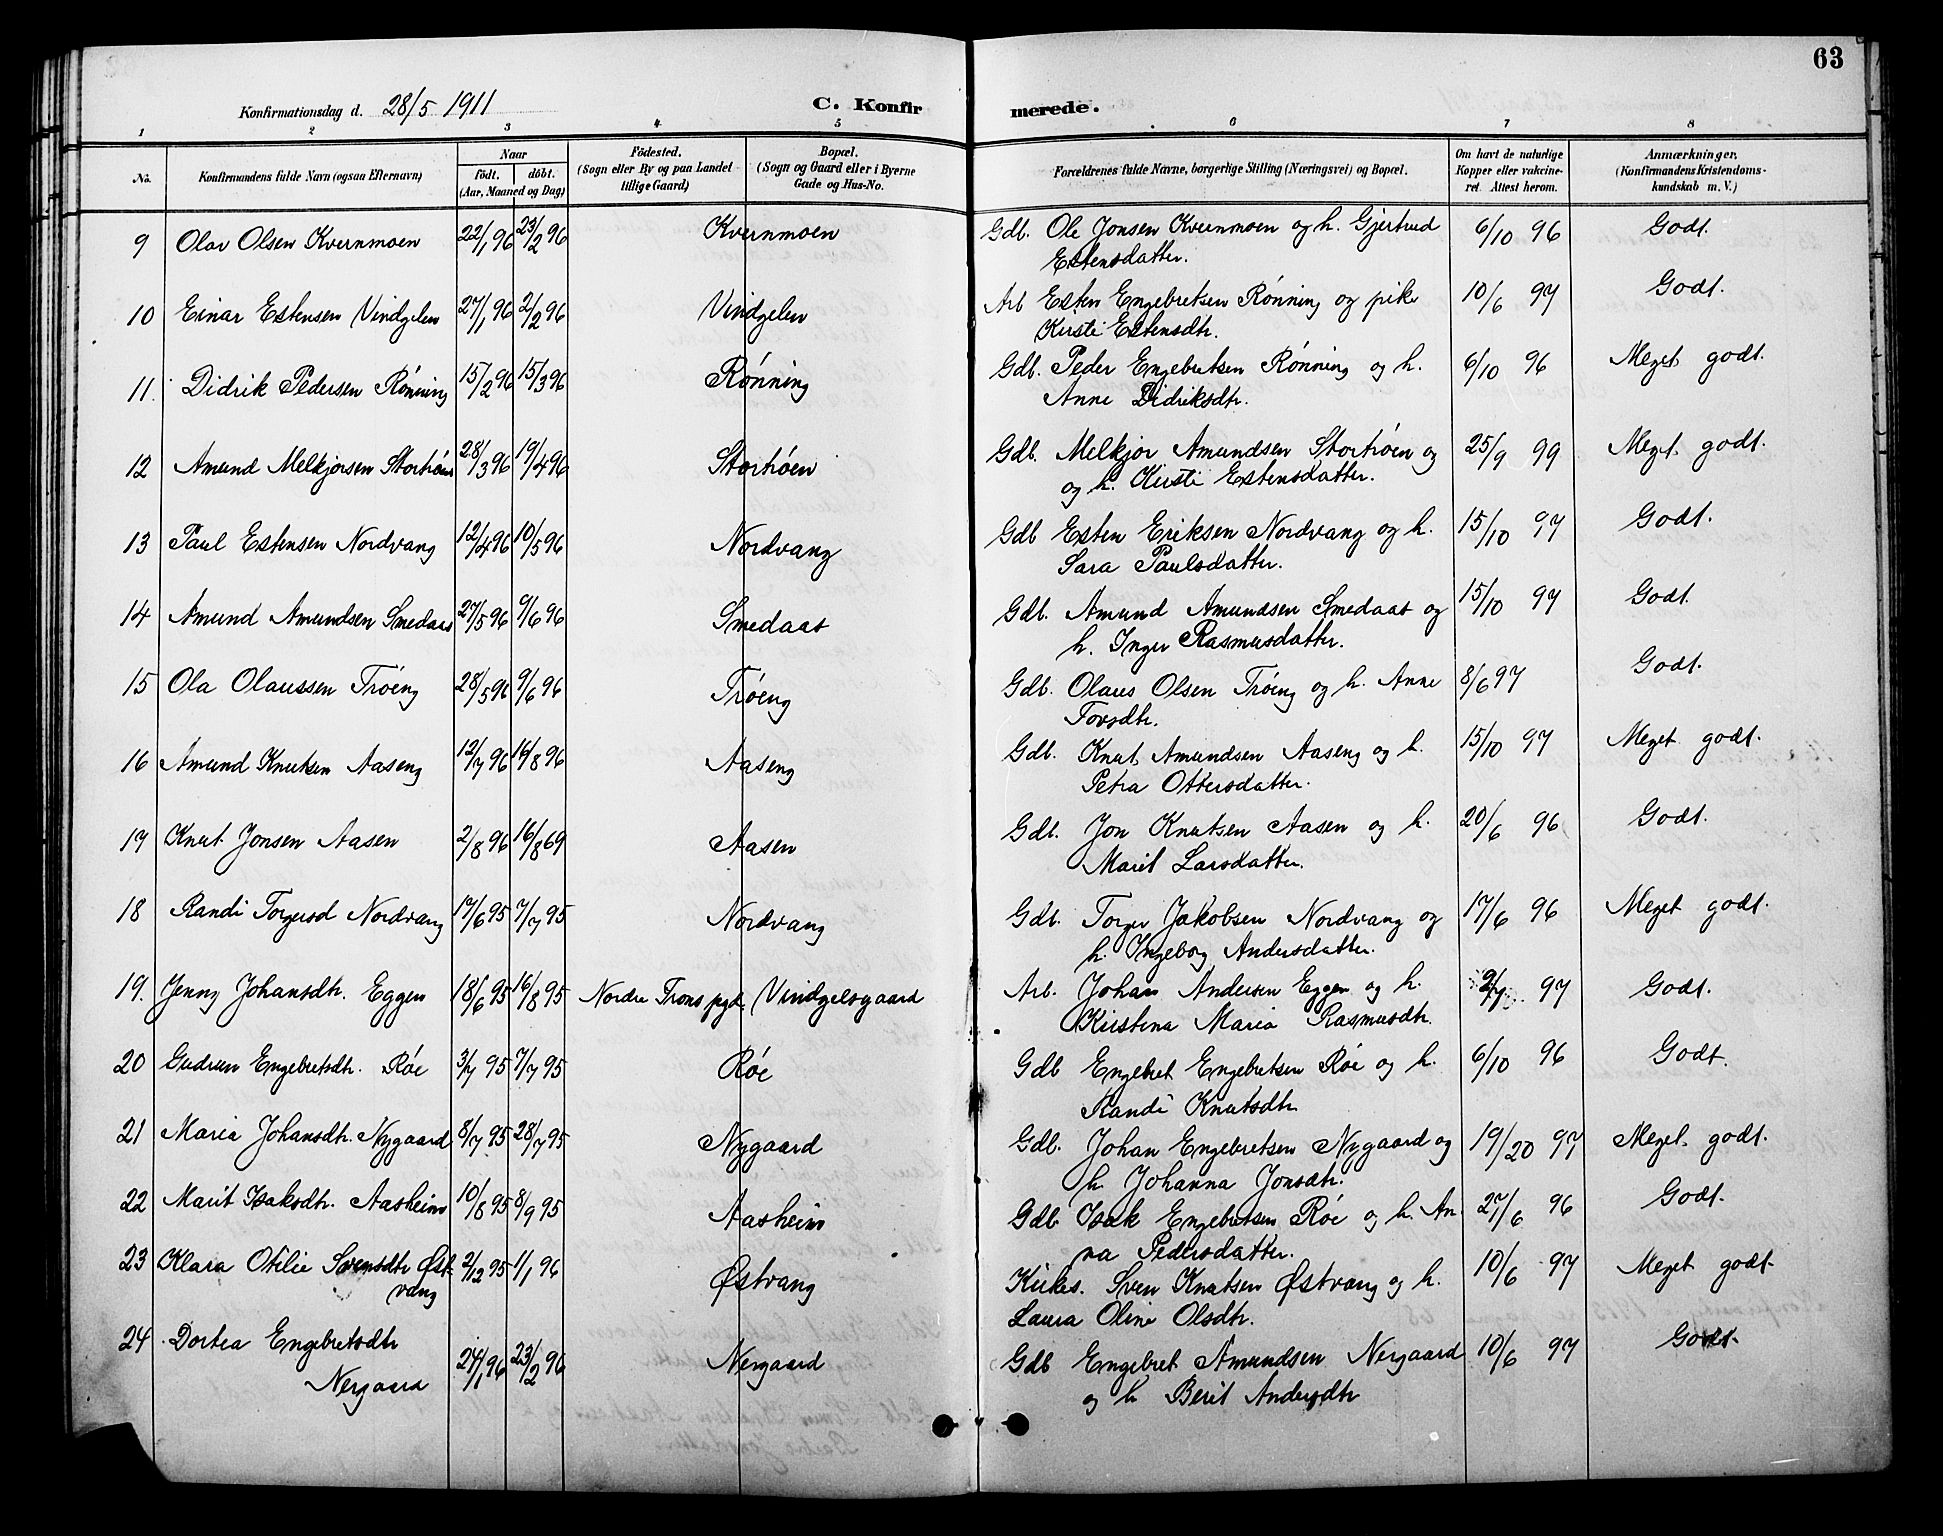 63
Konfirmationsdag d. 28/5 1911 C. Konfirmerede.
1 2 3 4 5 6 7 8
No. Konfirmandens fulde Navn (ogsaa Efternavn) Naar født. døbt. (Aar, Maaned og Dag) Fødested. (Sogn eller By og paa Landet tillige Gaard) Bopæl. (Sogn og Gaard eller i Byerne Gade og Hus-No. Forældrenes fulde Navne, borgerlige Stilling (Næringsvei) og Bopæl. Om havt de naturlige Kopper eller vakcineret. Attest herom. Anmærkninger. (Konfirmandens Kristendomskundskab m. V.)
9 Olav Olsen Kvernmoen 22/1 96 23/2 96 Kvernmoen Gdb. Ole Jonsen Kvernmoen og h. Gjertrud 6/10 96 Godt.
Estensdatter.
10 Einar Estensen Vindgelen 27/1 96 2/2 96 Vindgelen Arb Esten Engebretsen Rønning og pike 10/6 97 Godt.
Kirsti Estensdtr.
11. Didrik Pedersen Rønning 15/2 96 15/3 96 Rønning Gdb. Peder Engebretsen Rønning og h. 6/10 96 Meget godt.
Anne Didriksdtr.
12 Amund Melkjorsen Stortrøen 28/3 96 19/4 96 Stortrøen Gdb. Melkjor Amundsen Stortrøen og 25/9 99 Meget godt.
og h. Kirsti Estensdatter.
13 Paul Estensen Nordvang 12/4 96 10/5 96 Nordvang Gdb Esten Eriksen Nordvang og h. 15/10 97 Godt.
Sara Paulsdatter.
14 Amund Amundsen Smedaas 27/5 96 9/6 96 Smedaas Gdb. Amund Amundsen Smedaas og 15/10 97 Godt.
h. Inger Rasmusdatter.
15 Ola Olaussen Trøeng 28/5 96 9/6 96 Trøeng Gdb. Olaus Olsen Trøeng og h. Anne 8/6 97 Godt.
Torsdtr.
16 Amund Knutsen Aaseng 12/7 96 16/8 96 Aaseng Gdb. Knut Amundsen Aaseng og h. 15/10 97 Meget godt.
Petra Ottersdatter.
17 Knut Jonsen Aasen 2/8 96 16/8 69 Aasen Gdb. Jon Knutsen Aasen og h. 20/6 96 Godt.
Marit Larsdatter.
18 Randi Torgersd Nordvang 17/6 95 7/7 95 Nordvang Gdb. Torger Jakobsen Nordvang og 17/6 96 Meget godt.
h. Ingeborg Andersdatter.
19. Jenny Johansdtr. Eggen 18/6 95 16/8 95 Nordre Trons pgd. Vindgelsgaard Arb. Johan Andersen Eggen og h. 2/7 97 Godt.
Kirstena Maria Rasmusdtr.
20 Gudrun Engebretsdtr. Røe 3/7 95 7/7 95 Røe Gdb Engebret Engebretsen Røe og h. 6/10 96 Godt.
Randi Knutsdtr
21 Maria Johansdtr. Nygaard 8/7 95 28/7 95 Nygaard Gdb. Johan Engebretsen Nygaard og 19/20 97 Meget godt.
h. Johanna Jonsdtr.
22 Marit Isaksdtr. Aasheim 10/8 95 8/9 95 Aasheim Gdb. Isak Engebretsen Røe og h. An 27/6 96 Godt.
na Pedersdatter.
23 Klara Otilie Svensdtr Øst- 2/12 95 1/1 96 Østvang Kirkes. Sven Knutsen Østvang og h. 10/6 97 Meget godt.
vang Laura Oline Olsdtr.
24 Dortea Engebretsdtr 24/1 96 23/2 96 Nergaard Gdb Engebret Amundsen Nergaard 10/6 97 Godt.
Nergaard og h Berit Andersdtr